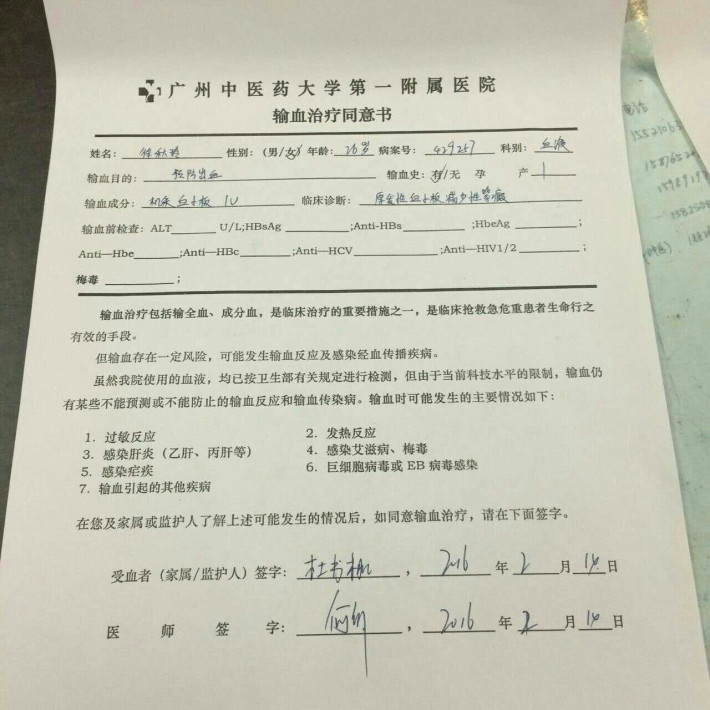 广州中医药大学第一附属医院
输血治疗同意书
姓名： 性别：（男/女）年龄：26岁 病案号：429257 科别：血液
输血目的：预防出血 输血史：有/无 孕 产 1
输血成分：机采血小板 1U 临床诊断：原发性血小板减少性紫癜
输血前检查：ALT U/L;HBsAg ;Anti-HBs ;HbeAg ;
Anti—Hbe ;Anti—HBc ;Anti—HCV ;Anti—HIV1/2 ;
梅毒 ;
输血治疗包括输全血、成分血，是临床治疗的重要措施之一，是临床抢救急危重患者生命行之
有效的手段。
但输血存在一定风险，可能发生输血反应及感染经血传播疾病。
虽然我院使用的血液，均已按卫生部有关规定进行检测，但由于当前科技水平的限制，输血仍
有某些不能预测或不能防止的输血反应和输血传染病。输血时可能发生的主要情况如下：
1. 过敏反应 2. 发热反应
3. 感染肝炎（乙肝、丙肝等） 4. 感染艾滋病、梅毒
5. 感染疟疾 6. 巨细胞病毒或 EB 病毒感染
7. 输血引起的其他疾病
在您及家属或监护人了解上述可能发生的情况后，如同意输血治疗，请在下面签字。
受血者（家属/监护人）签字： ，2016 年 2 月 14 日
医师签字： ，2016 年 2 月 14 日